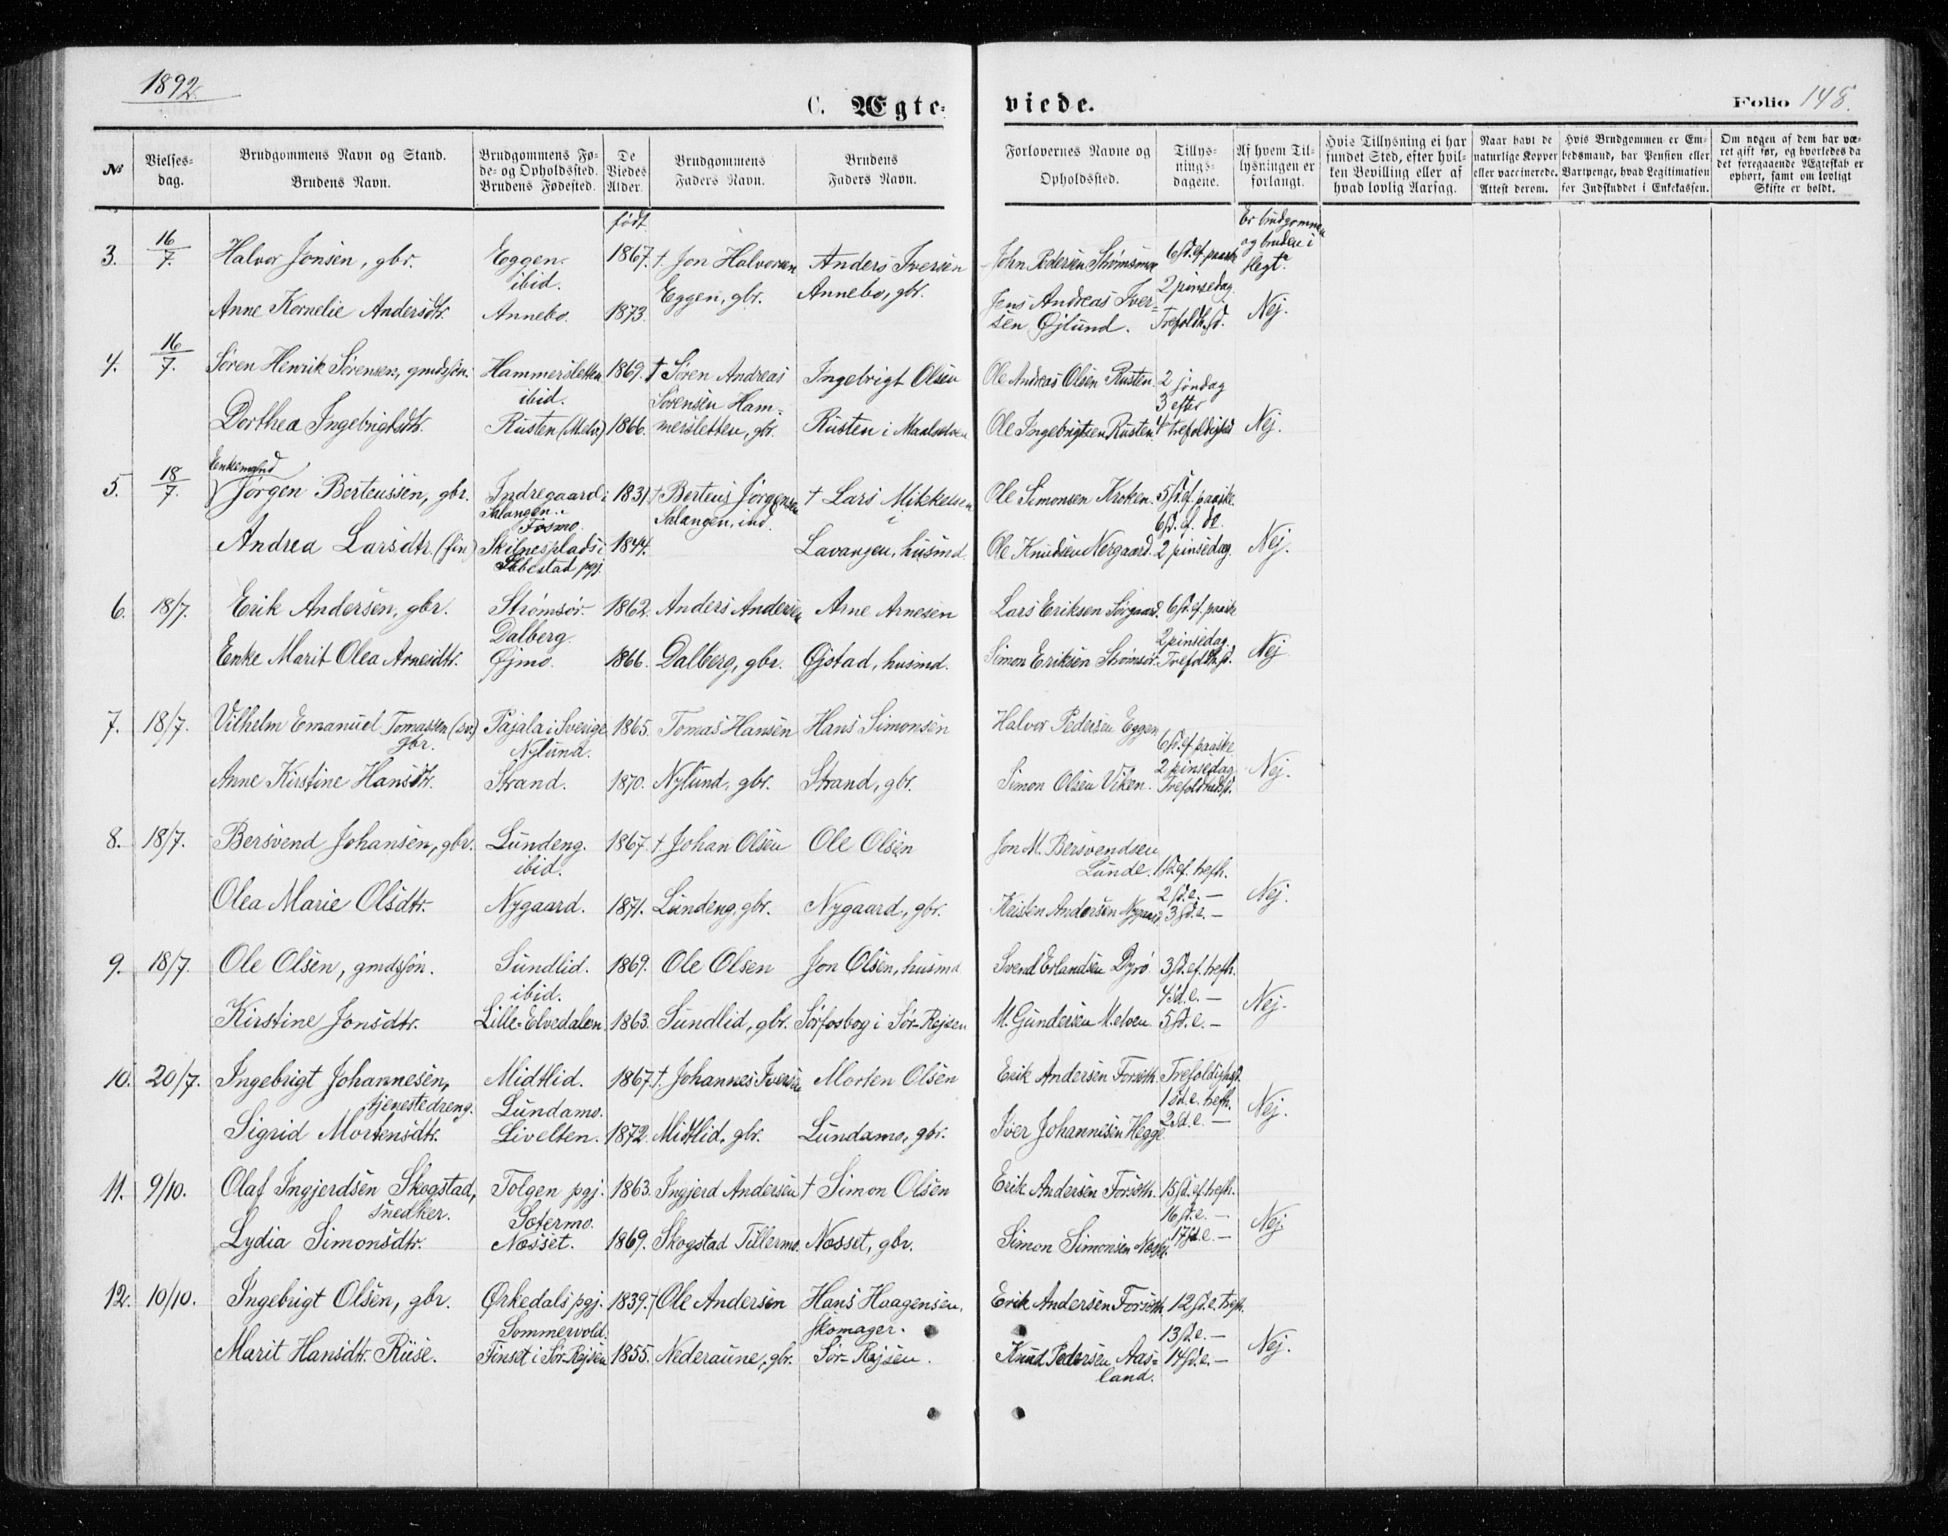 1892.
C. Ægte-
viede.
Folio 148.
№
Vielses-
dag.
Brudgommens Navn og Stand.
Brudens Navn.
Brudgommens Fø-
de- og Opholdssted.
Brudens Fødested.
De
Viedes
Alder.
Brudgommens
Faders Navn.
Brudens
Faders Navn.
Forlovernes Navne og
Opholdssted.
Tillys-
nings-
dagene.
Af hvem Til-
lysningen er
forlangt.
Hvis Tillysning ei har
fundet Sted, efter hvil-
ken Bevilling eller af
hvad lovlig Aarsag.
Naar havt de
naturlige Kopper
eller vaccinerede.
Attest derom.
Hvis Brudgommen er Em-
bedsmand, har Pension eller
Vartpenge, hvad Legitimation
for Indskudet i Enkekassen.
Om nogen af dem har væ-
ret gift før, og hvorledes da
det foregaaende Ægteskab er
ophørt, samt om lovligt
Skifte er holdt.
født
Er brudgommen
og bruden i
slegt?
3. 16/7. Halvor Jonsen, gbr. Eggen. 1867. † Jon Halvorsen Anders Iversen John Pedersen Strømsmo 6 sd. ef. paaske
ibid. Eggen, gbr. Annebo, gbr. 2 pinsedag
Anne Kornelie Andersdtr. Annebo. 1873. Jens Andreas Iver-
sen Øjlund. Trefoldh. sd. Nej.
4. 16/7. Søren Henrik Sørensen, gmdsøn. Hammersletten 1869. † Søren Andreas Ingebrigt Olsen Ole Andreas Olsen Rusten. 2 søndag
ibid. Sørensen Ham- 3 efter
Dorthea Ingebrigtsdtr. Rusten (Melø) 1866. mersletten, gbr. Rusten i Maalselven Ole Ingebrigtsen Rusten. 4 trefoldighed Nej.
Enkemand
5. 18/7. Jørgen Berteussen, gbr. Indregaard i 1831. † Berteus Jørgensen † Lars Mikkelsen Ole Simonsen Kroken. 5 sd. ef. paaske
Salangen. Salangen, ind.
Fosmo. 6 sd. ef. do.
Andrea Larsdtr. (fin) Skilnesplads i 1844. Lavangen, husmd. Ole Knudsen Nergaard. 2 pinsedag. Nej.
Ibbestad pgj.
6. 18/7. Erik Andersen, gbr. Strømsør. 1862. Anders Andersen Arne Arnesen Lars Eriksen Sørgaard. 6 sd. ef. paaske
Dalberg. 2 pinsedag
Enke Marit Olea Arnesdtr. Øjmo. 1866. Dalberg, gbr. Øjstad, husmd. Simon Eriksen Strømsør. Trefoldh. sd. Nej
7. 18/7. Vilhelm Emanuel Tomassen (sv) Pajala i Sverige 1865. Tomas Hansen Hans Simonsen Halvor Pedersen Eggen
gbr. Nylund. 6 sd. ef. paaske
2 pinsedag
Anne Kirstine Hansdtr. Strand. 1870. Nylund, gbr. Strand, gbr. Simon Olsen Viken. Trefoldhedsd. Nej.
8. 18/7. Bersvend Johansen, gbr. Lundeng. 1867. † Johan Olsen Ole Olsen Jon M. Bersvendsen
ibid. Lunde. 1 sd. ef. trefh.
2 sd. e. —
Olea Marie Olsdtr. Nygaard. 1871. Lundeng, gbr. Nygaard, gbr. Kristen Andersen Nygaard 3 sd. e. — Nej.
9. 18/7. Ole Olsen, gmdsøn. Sundlid. 1869. Ole Olsen Jon Olsen, husmd Svend Erlandsen Dyrø 3 sd. ef. trefh.
ibid. 4 sd. e. —
Kirstine Jonsdtr. Lille-Elvedalen. 1863. Sundlid, gbr. Sørfosborg i Sør-Rejsen M. Gundersen Melven. 5 sd. e. — Nej.
10. 20/7. Ingebrigt Johannesen, Midtlid. 1867. †. Johannes Iversen Morten Olsen Erik Andersen Forseth. Trefoldighsd.
tjenestedreng. Lundamo. 1 sd. e. trefh.
Sigrid Mortensdtr. Livelten. 1872. Midtlid, gbr. Lundamo, gbr. Iver Johannesen Hegge. 2 sd. e. — Nej.
11. 9/10. Olaf Ingjerdsen Skogstad, Tolgen pgj. 1863. Ingjerd Andersen † Simon Olsen Erik Andersen Forseth. 15 sd. ef. trefh.
snedker. Sætermo. 16 sd. e. —
Lydia Simonsdtr. Næsset. 1869. Skogstad Tillermo. Næsset, gbr. Simon Simonsen Næsset. 17 sd. e. — Nej
12. 10/10. Ingebrigt Olsen, gbr. Ørkedals pgj. 1839. † Ole Andersen Hans Haagensen, Erik Andersen Forseth 12 sd. e. trefh.
Sommervold. skomager. 13 sd. e. —
Marit Hansdtr. Riise. Finset i Sør-Rejsen 1855. Nederaune, gbr. Sør-Rejsen. Knud Pedersen Aas- 14 sd. e. — Nej.
land.